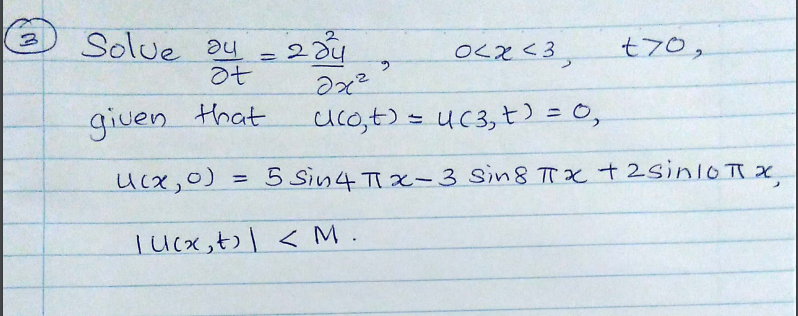 ③ Solve ∂u/∂t = 2 ∂²u/∂x², 0<x<3, t>0,
given that u(0,t) = u(3,t) = 0,
u(x,0) = 5 Sin4πx - 3 Sin8πx + 2sin10πx,
|u(x,t)| < M.